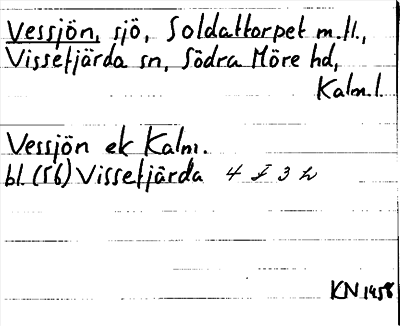 Vessjön, sjö, Soldattorpet m.fl.,
Vissefjärda sn, Södra Möre hd,
Kalm.l.
Vessjön ek Kalm.
bl. (56) Vissefjärda 4 I 3 h
KN 1458